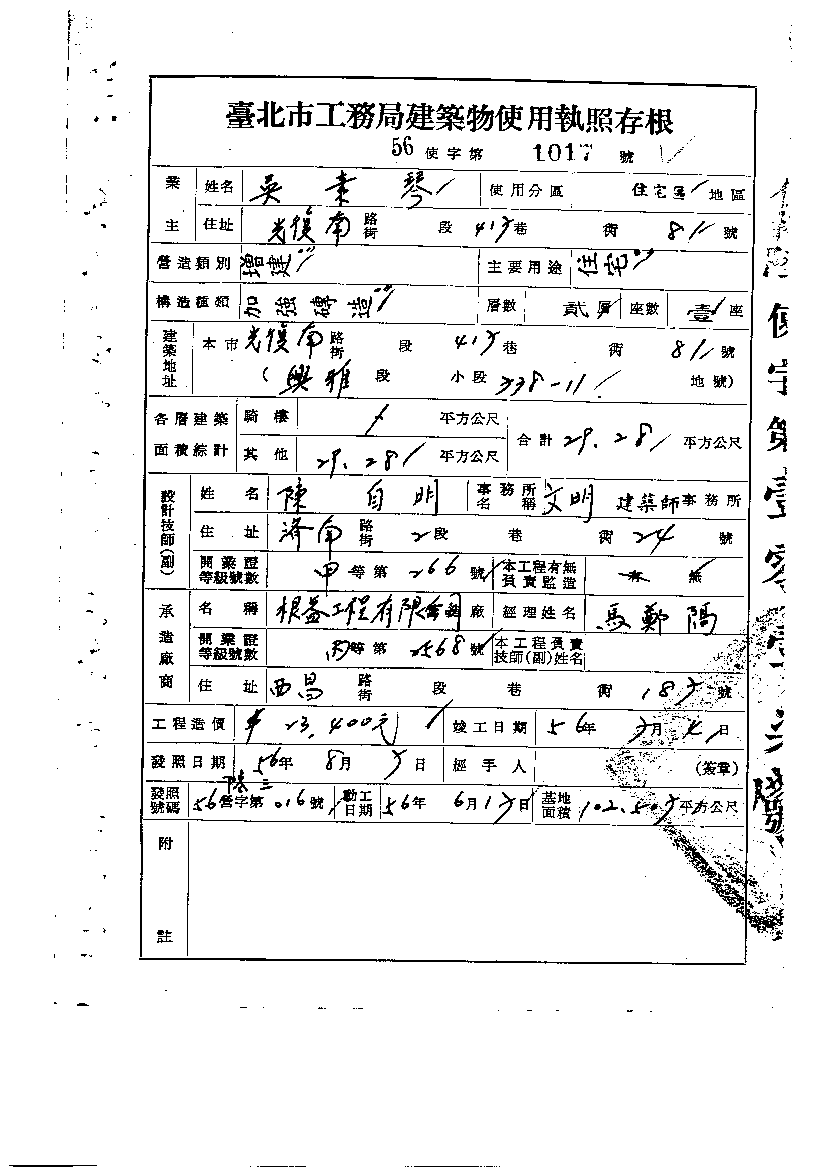 臺北市工務局建築物使用執照存根
56 使字第 1017 號
業主 姓名 吳素琴 使用分區 住宅區 地區
住址 光復南 路街 段 415巷 街 81 號
營造類別 增建 主要用途 住宅
構造種類 加強磚造 層數 貳層 座數 壹座
建築地址 本市 光復南 路街 段 415巷 街 81 號
(興雅 段 小段 338-11 地號)
各層建築面積綜計 騎樓 平方公尺 合計 29.28 平方公尺
其他 29.28 平方公尺
設計技師(副) 姓名 陳自明 事務所名稱 文明 建築師事務所
住址 濟南 路街 2段 巷 街 24 號
開業證等級號數 甲等第 266 號 本工程有無負責監造 無
承造廠商 名稱 根益工程有限公司 廠 經理姓名 馬鄭陽
開業證等級號數 丙等第 2568 號 本工程負責技師(副)姓名
住址 西昌 路街 段 巷 街 185 號
工程造價 23,400元 竣工日期 56年 月 4日
發照日期 56年 8月 5日 經手人 (簽章)
發照號碼 56營字第 016號 動工日期 56年 6月15日 基地面積 102.505平方公尺
附註
使字第壹零壹
號